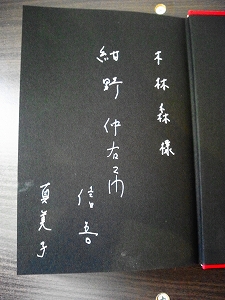 木林森様
紺野仲右ヱ門
信吾
真美子